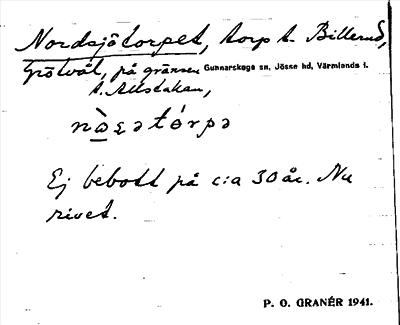 Nordsjötorpet, torp t. Billerud,
Grötvål, på gränsen Gunnarskogs sn, Jösse hd, Värmlands l.
t. Allstakan,
Ej bebott på c:a 30 år. Nu
rivet.
P. O. GRANÉR 1941.